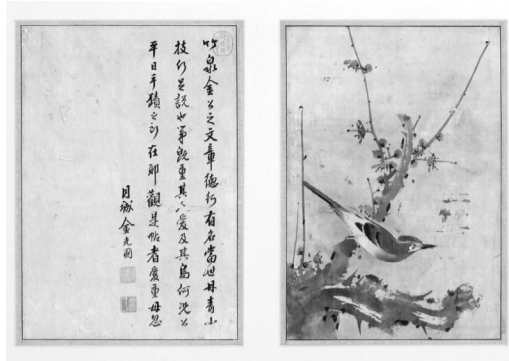 竹泉金公之文章德行有名當世丹青小
技何足說也第既重其人愛及其烏何況公
平日手蹟之所在耶觀是帖者愛重毋忽
月城金光國